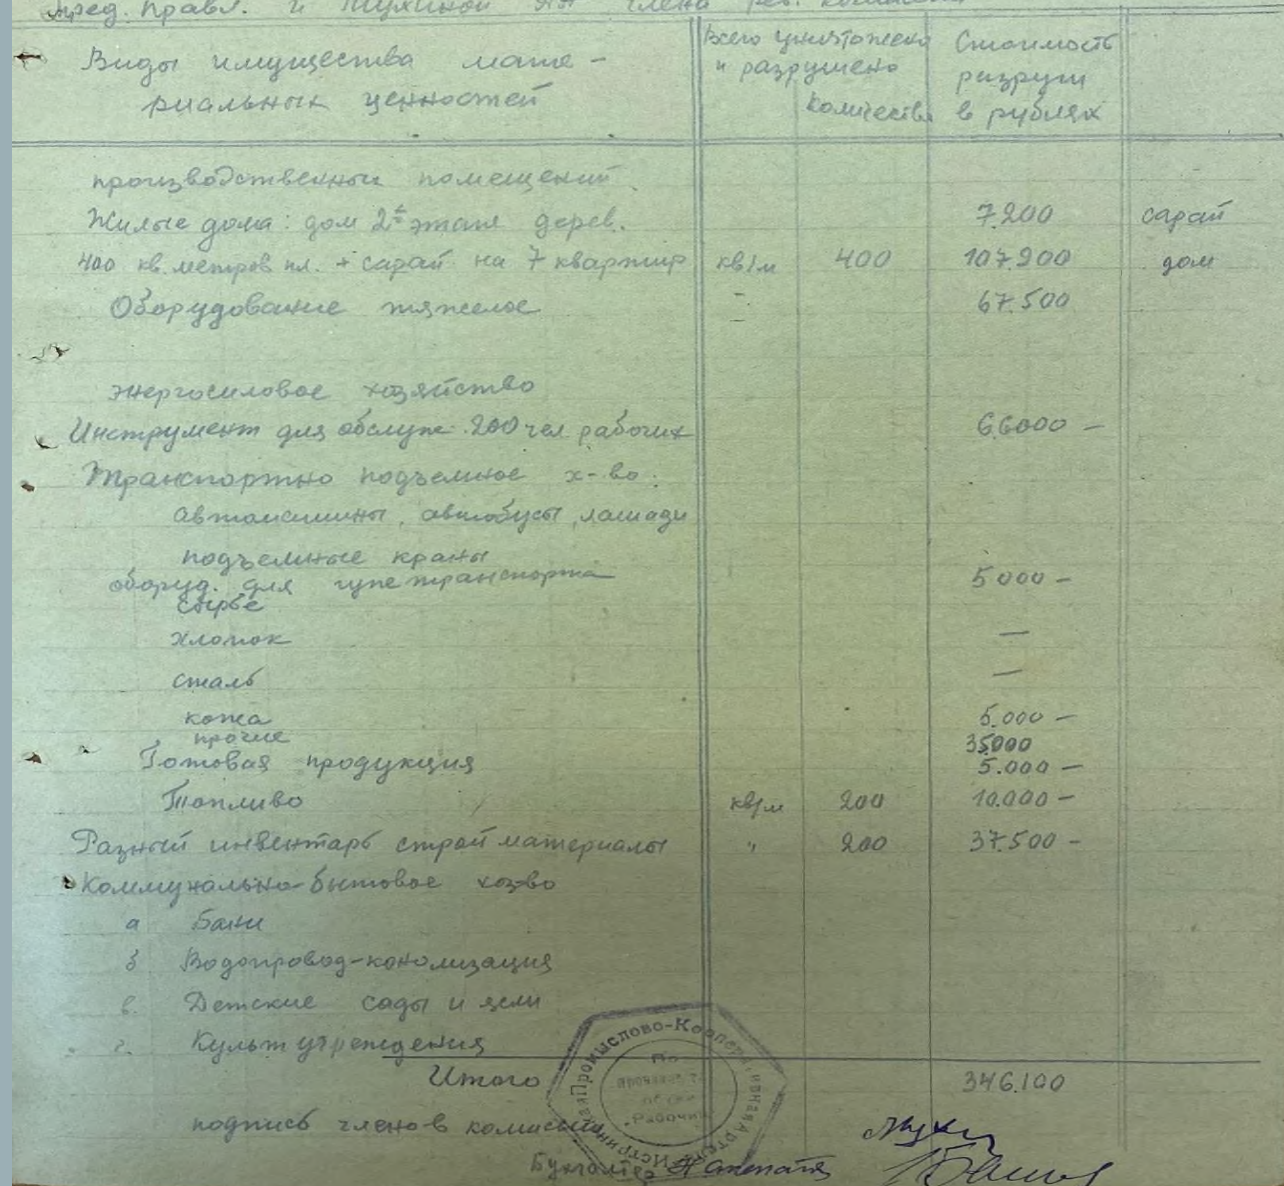 пред. Правл. и Мухиной члена рев. комиссии
Виды имущества мате-
риальных ценностей
Всего уничтожено
и разрушено
количество
Стоимость
разрухи
в рублях
производственных помещений.
Жилые дома: дом 2х этажн дерев. 7.200 сарай
400 кв. метров пл. + сарай на 7 квартир кв/м 400 107.200 дом
Оборудование тяжелое - 67.500
энергосиловое хозяйство
Инструмент для обслуж. 200 чел. рабочих 66000 -
Транспортно подъемное х-во:
автомашины, автобусы, лошади
подъемные краны
оборуд. для гужетранспорта 5000 -
сырье
хлопок —
сталь —
кожа 5.000 -
прочие 35000
Готовая продукция 5.000 -
Топливо кв/м 200 10.000 -
Разный инвентарь строй материалы " 200 37.500 -
Коммунально-бытовое хоз-во
а Бани
б Водопровод-конолизация
в. Детские сады и ясли
г. Культ учреждения
Итого 346.100
подпись членов комиссии
Бухгалтер
Истринская Промыслово-Кооперативная Артель
По
обуви
"Рабочий